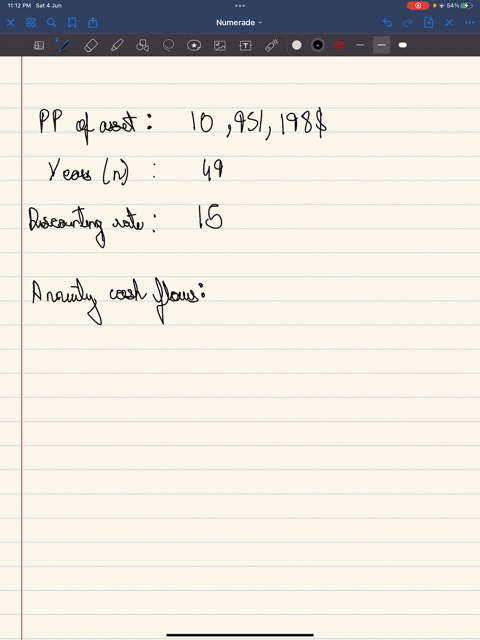 11:12 PM Sat 4 Jun
54%
Numerade
PP of asset : 10,951,198$
Years (n) : 49
Discounting rate : 15
Annuity cash flows: